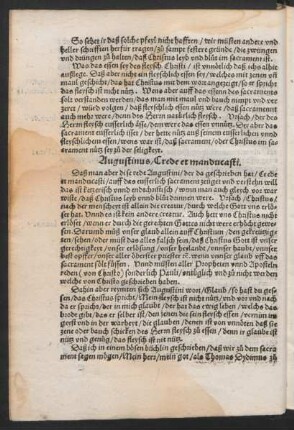 So sehet ir daß solche pfeyl nicht hafften / wir müsten andere und
heller schrifften herfür tragen / zů sampt festern gründe / die zwingen
und dringen zů halten / daß Christus leyb und blůt im sacrament ist.
Was das essen sey des fleysch Christi / ist unnötlich daß ichs alhie
außlege. Daß aber nicht ein fleyschlich essen sey / welches mit zenen uñ
maul geschicht / das hat Christus mit dem wort angezeigt / so er spricht
das fleysch ist nicht nütz. Wans aber auff das essen des sacraments
solt verstanden werden / das man mit maul und hend nimpt und ver
zert / würd volgen / das fleyschlich essen nütz were / daß sacrament
auch mehr were / denn des Herren natürlich fleysch. Ursach / der des
Herren fleysch eusserlich isset / dem were das essen unnütz. Wer aber das
sacrament eusserlich isset / der hette nutz auß seinem eusserlichen und
fleyschlichem essen / wens war ist / daß das sacrament / oder Christus im sacrament
nütz sey zů der seligkeyt.
Augustinus / Crede et manducasti.
Daß man aber dise rede Augustini / der da geschriben hat / Crede et
manducasti / auff das eusserlich sacrament zeucht und verstehen will
das ist ketzerisch und undechristlich / wenn man auch gleych vor war
wiste / daß Christus leyb und blůt drinnen were. Ursach / Christus /
nach der menscheyt ist allein die creatur / durch welche Gott uns erlö
ser hat. Und es ist kein andere creatur. Auch hett uns Christus nicht
erlöset / wenn er durch die gerechten Gottes nicht were erhöcht getre-
sen. Darumb můß unser glaub allein auff Christum / den gekreützig
ten / sehen / oder můst das alles falsch sein / das Christus Gott ist unser
gerechtigkeyt / unser erlösung / unser heylandt / unser frid / unser leben /
unser oberster bischoff unnd priester ꝛc. wenn unser glaub uff das
sacrament solt sehen. Unnd müssen aller Propheten und Aposteln
reden (von Christo) sonderlich Pauli / untüglich und zů nicht werden
welche von Christo geschriben haben.
Dahin aber reymten sich Augustini wort / Glaub / so hast du gesse-
sen / das Christus spricht / Mein fleysch ist nicht nütz / und vor und nach
da er spricht / der in mich glaubt / der hat das ewig leben / welchs das
brode gibt / das er selber ist / den jenen die sein fleysch essen / verstee im
geyst und in der warheyt / die glauben / denen ist auch nütz / daß sie ye
zene oder bauch schicken des Herren fleysch zů essen / denn ir glaube ist
nütz und genüg / das fleysch ist nit nütz.
Daß ich in einem bösen büchlin geschriben / daß wir zů dem sacra
ment sagen mögen / Mein herr / mein got / als Thomas Dydimus zů